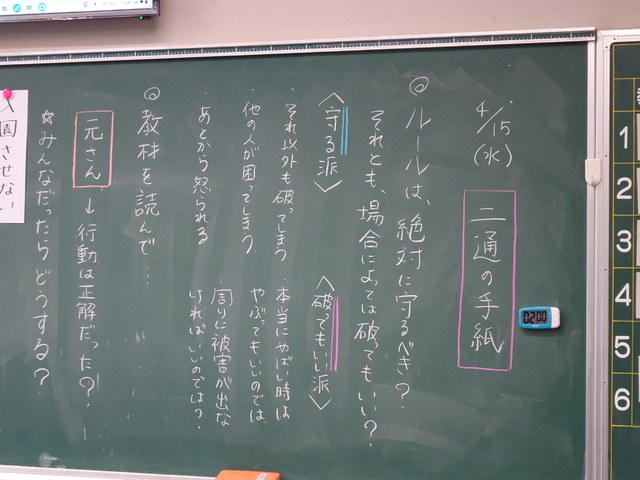 4/15(水)
二通の手紙
◎ルールは、絶対に守るべき？
それとも、場合によっては破ってもいい？
〈守る派〉
・それ以外も破ってしまう
・他の人が困ってしまう
・あとから怒られる
〈破ってもいい派〉
・本当にやばい時は
やぶってもいいのでは
・周りに被害が出な
ければいいのでは？
◎教材を読んで…
元さん → 行動は正解だった？
☆みんなだったらどうする？
入園させない
0200
1
2
3
4
5
6